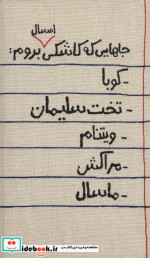 امسال
جاهایی که کاشکی بروم:
- کوبا
- تخت سلیمان
- ویتنام
- مراکش
- ماسال
ایده بوک